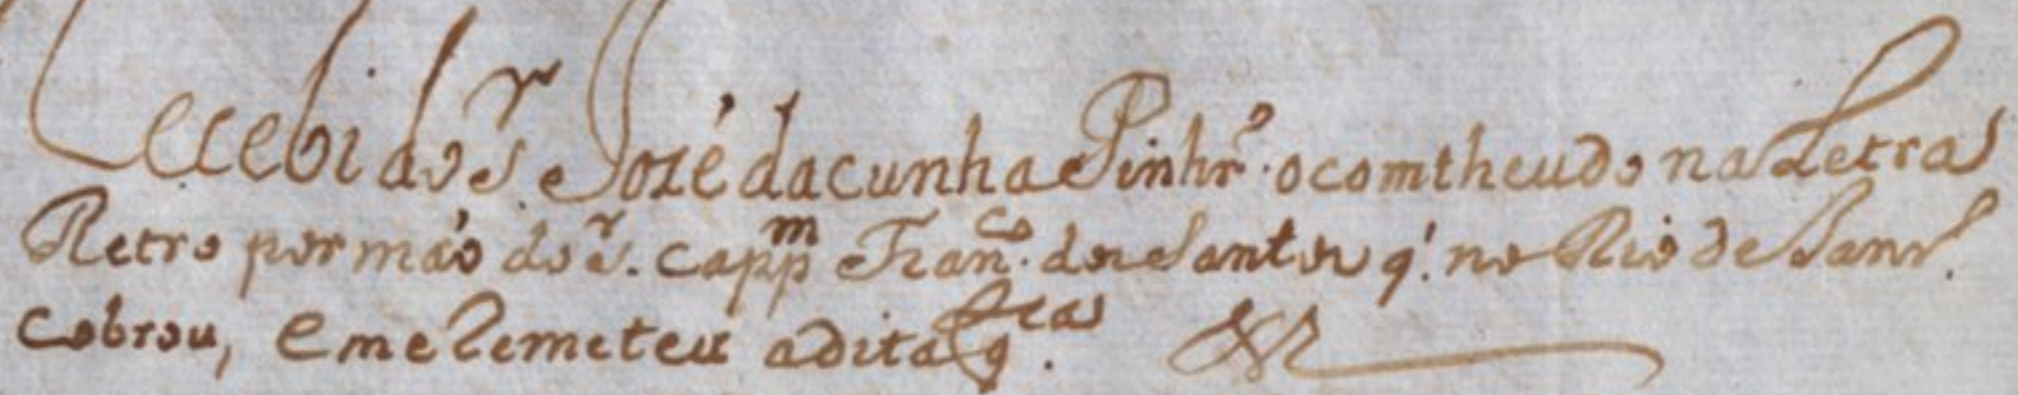 Recebi do Sr. José da Cunha Pinhr.º o comtheudo na Letras
Retro por mão do Sr. Cappm Franco. dos Santos q. no Rio de Janr.
Cobrou, e me Remeteu a dita